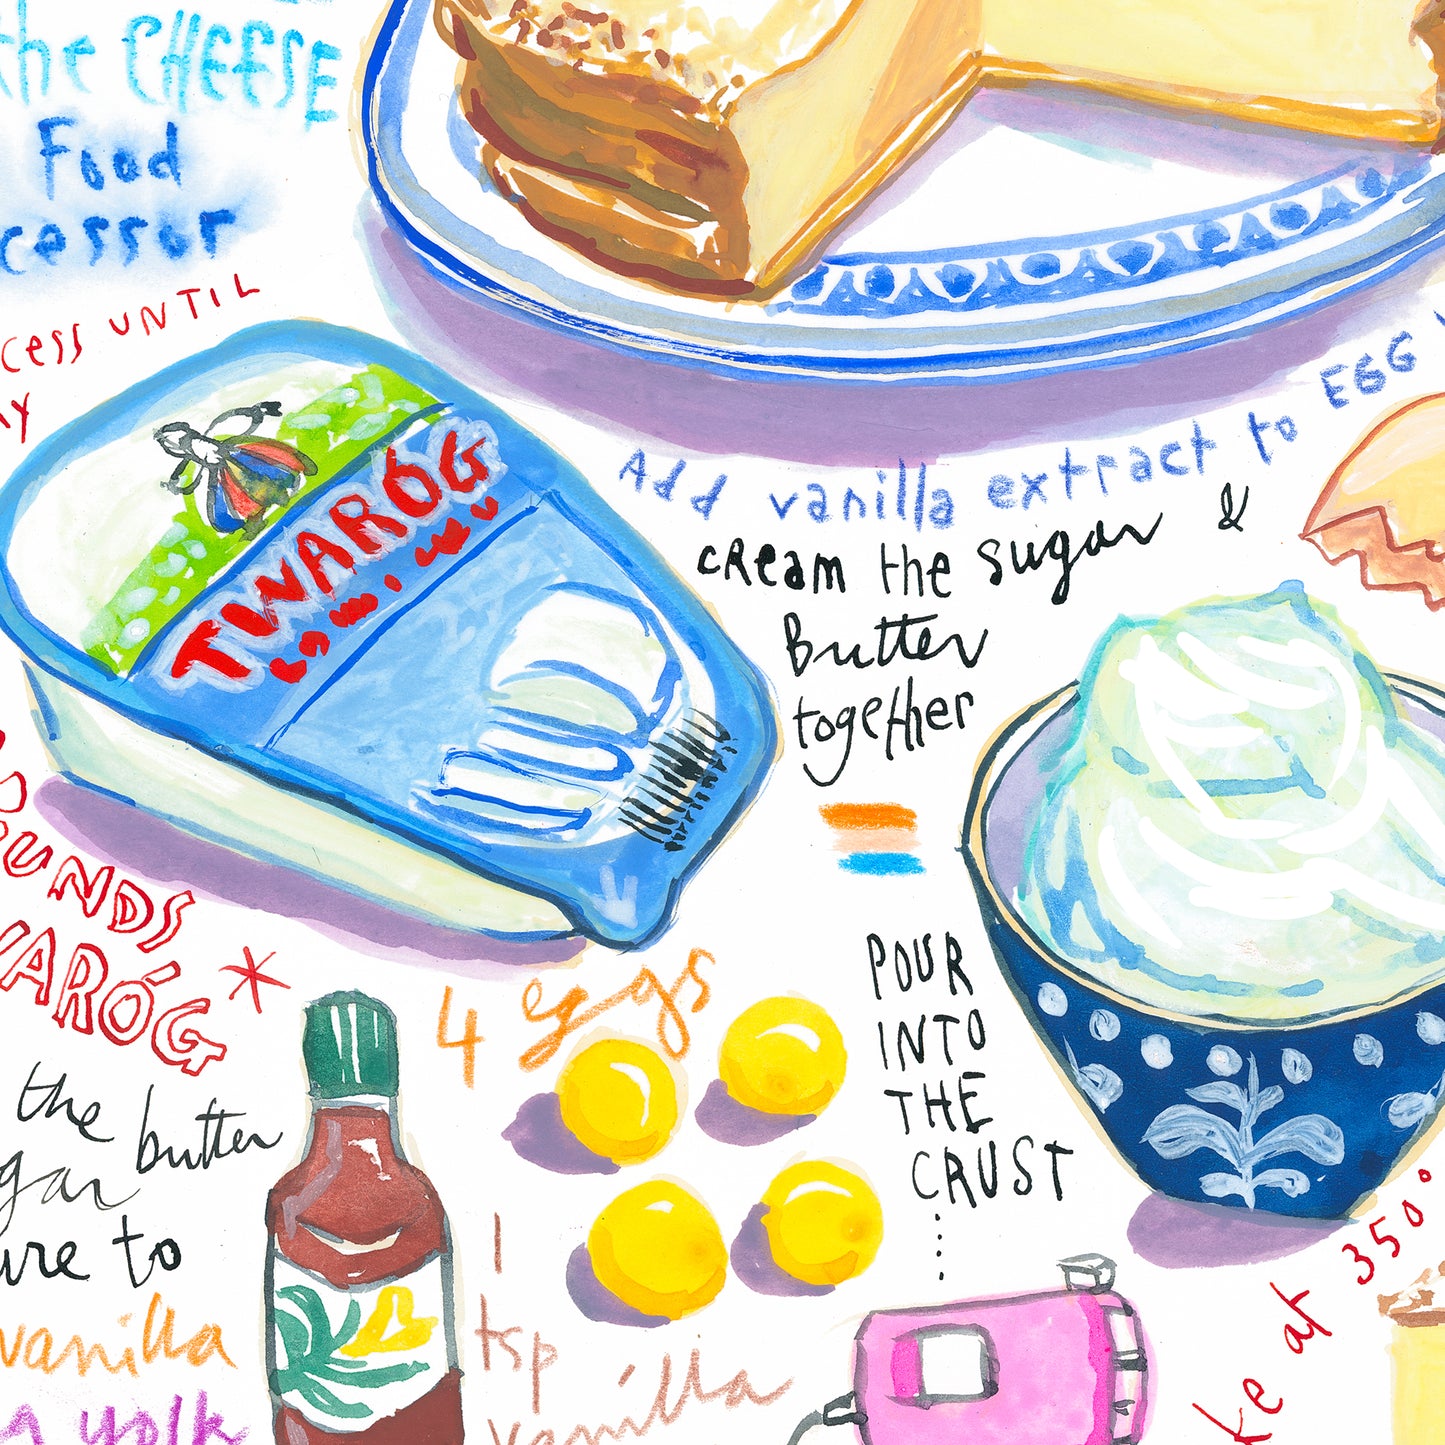 the CHEESE
Food
cessor
cess UNTIL
TWARÓG
Add vanilla extract to EGG
cream the sugar &
Butter
together
OUNDS
WARÓG *
4 eggs
POUR
INTO
THE
CRUST
the butter
gar
ure to
vanilla
yolk
1
tsp
vanilla
ke at 350°